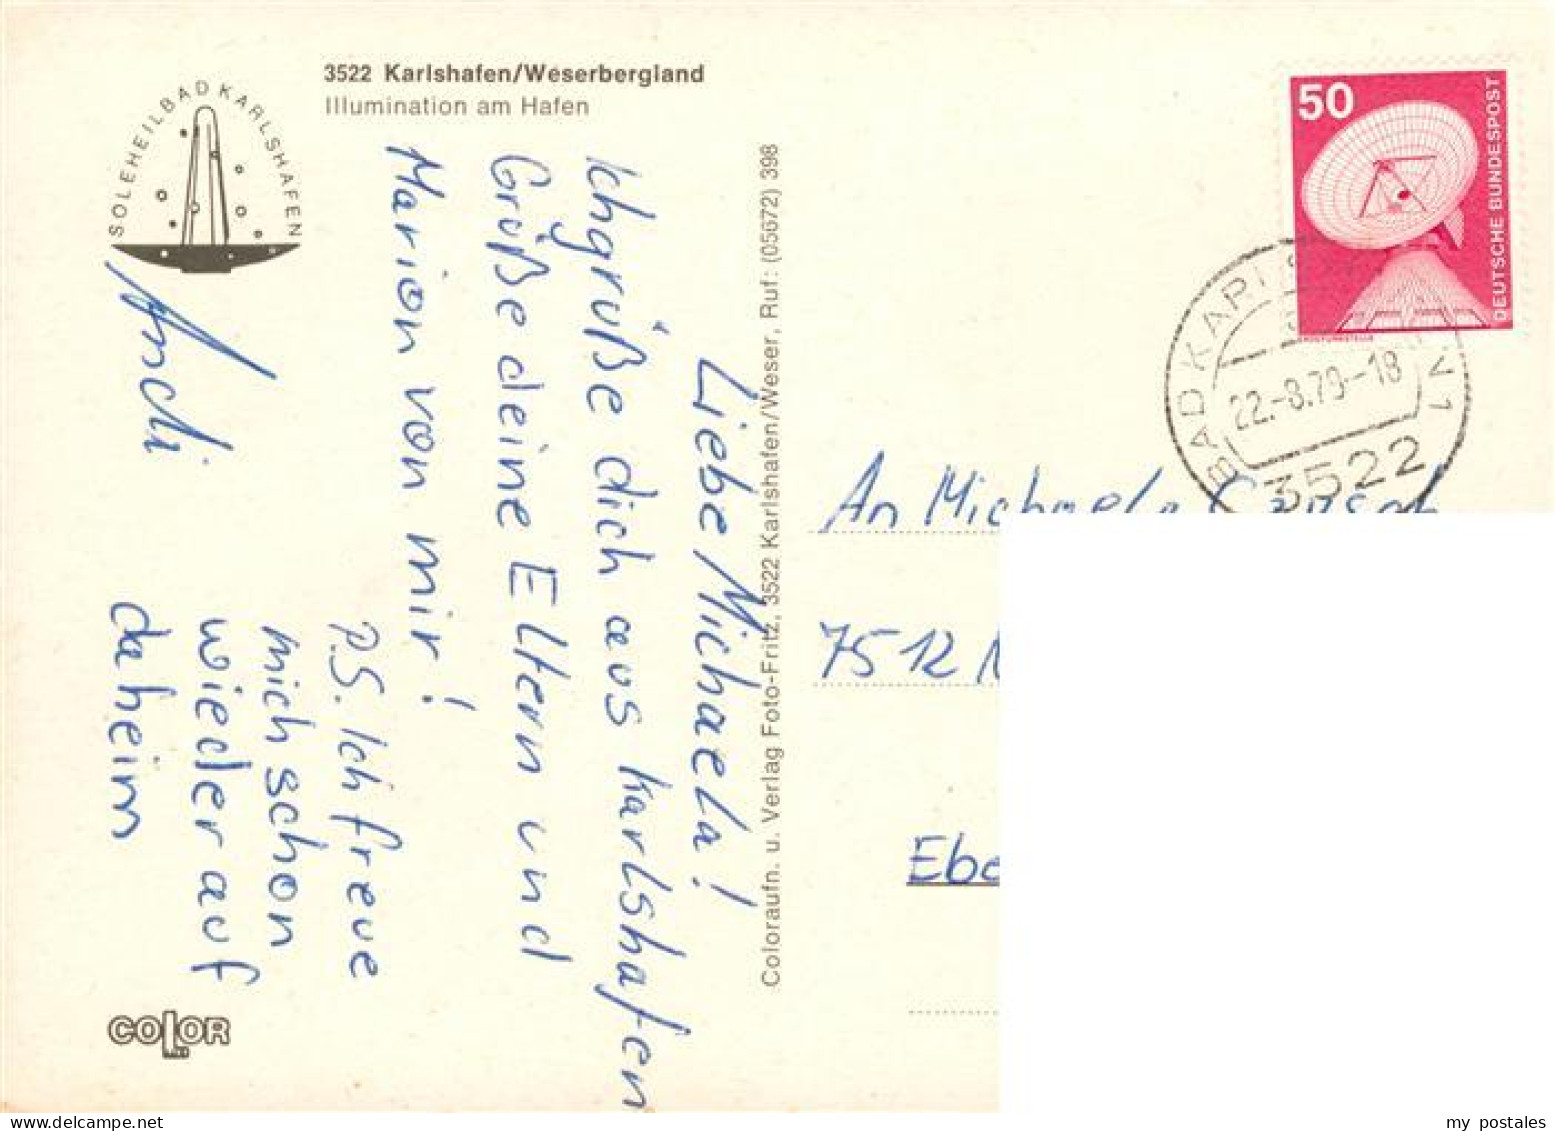 3522 Karlshafen/Weserbergland
Illumination am Hafen
SOLEHEILBAD KARLSHAFEN
Liebe Michaela!
Ich grüße dich aus Karlshafen
Grüße deine Eltern und
Marion von mir!
Andi
P.S. Ich freue
mich schon
wieder auf
daheim
COLOR
Coloraufn. u. Verlag Foto-Fritz, 3522 Karlshafen/Weser, Ruf: (05672) 398
50
DEUTSCHE BUNDESPOST
BAD KARLSHAFEN 1
22.-8.79-18
3522
An Michaela
7512
Ebe
my postales